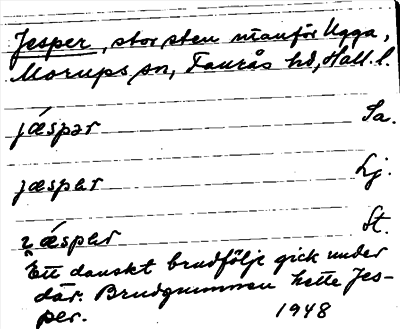 Jesper, stor sten utanför Ugga,
Morups sn, Faurås hd, Hall. l.
jæspər Sa.
jæspər Lj.
jæspər St.
Ett danskt brudfölje gick under
där. Brudgummen hette Jes-
per. 1948